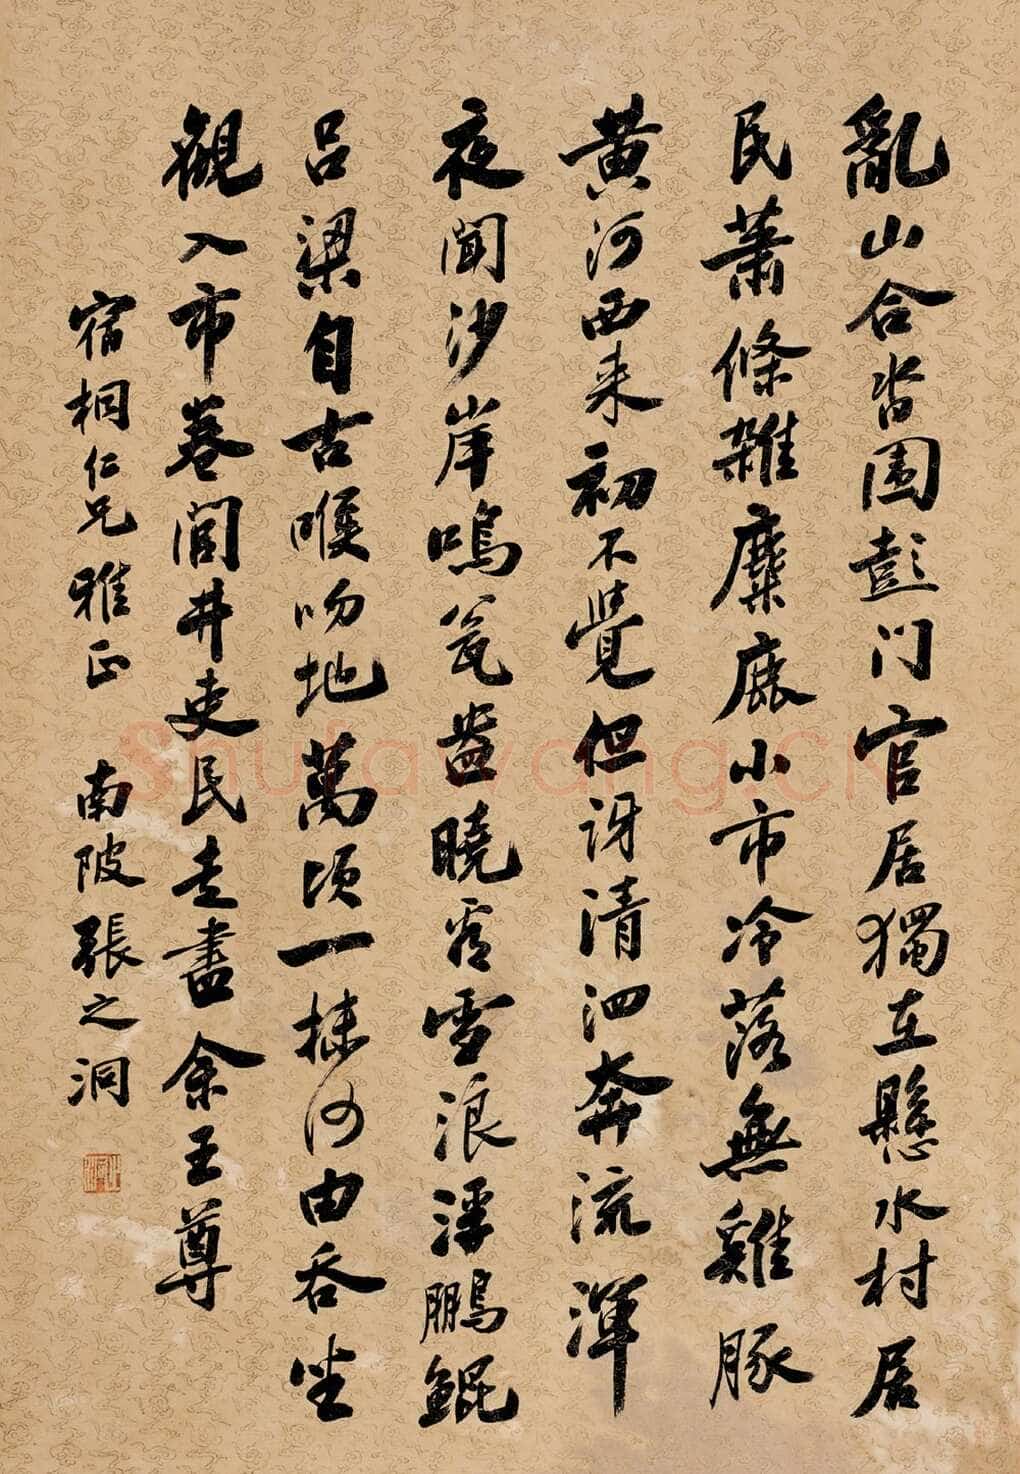 亂山合沓围彭门官居獨在懸水村居
民萧條雜麋鹿小市冷落無雞豚
黄河西来初不覺但讶清泗奔流渾
夜闻沙岸鳴瓮盎曉看雪浪浮鵬鯤
吕梁自古喉吻地萬頃一抹何由吞坐
觀入市卷闾井吏民走盡余王尊
宿桐仁兄雅正 南陂張之洞
shufawang.cn